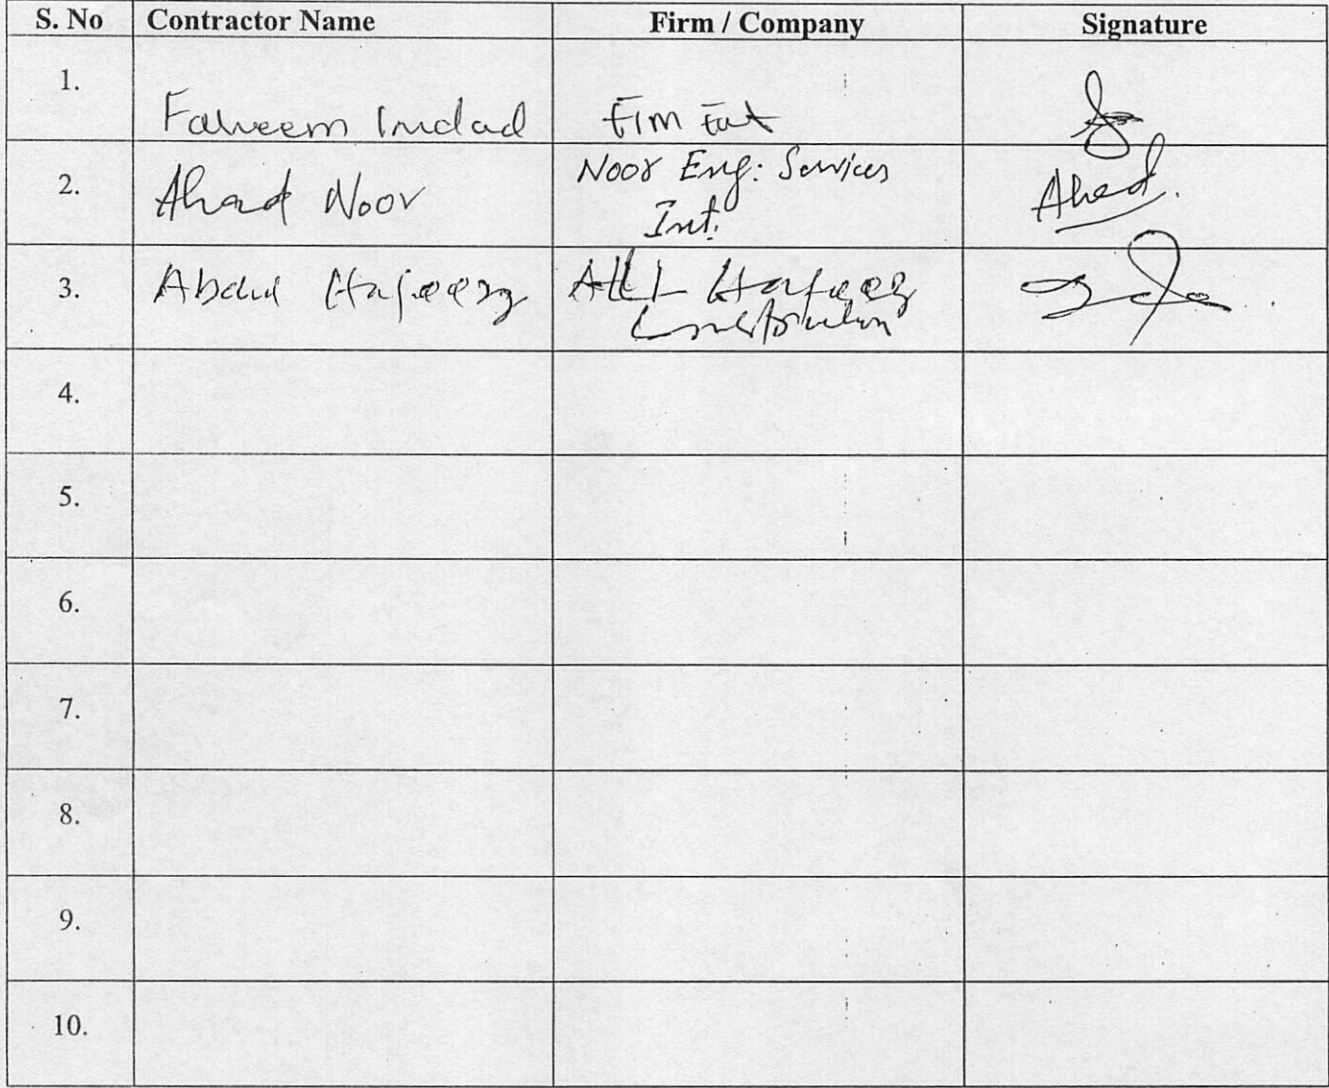 S. No Contractor Name Firm / Company Signature
1. Faheem Imdad FIM Ent
2. Ahad Noor Noor Eng: Services Ahad.
Int:
3. Abdul Hafeez AHL Hafeez
Construction
4.
5.
6.
7.
8.
9.
10.